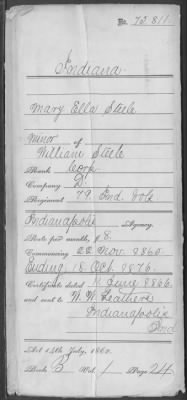 No. 73,811
Indiana
Mary Ella Steele
Minor of
William Steele
Rank Corp
Company D.
Regiment 79 Ind. Vols
Indianapolis Agency.
Rate per month, $8.
Commencing 22 Nov. 1860
Ending 18 Oct. 1876.
Certificate dated 11 June 1866
and sent to W. W. Leathers
Indianapolis
Ind
Act 14th July, 1862.
Book B Vol. 1 Page 24